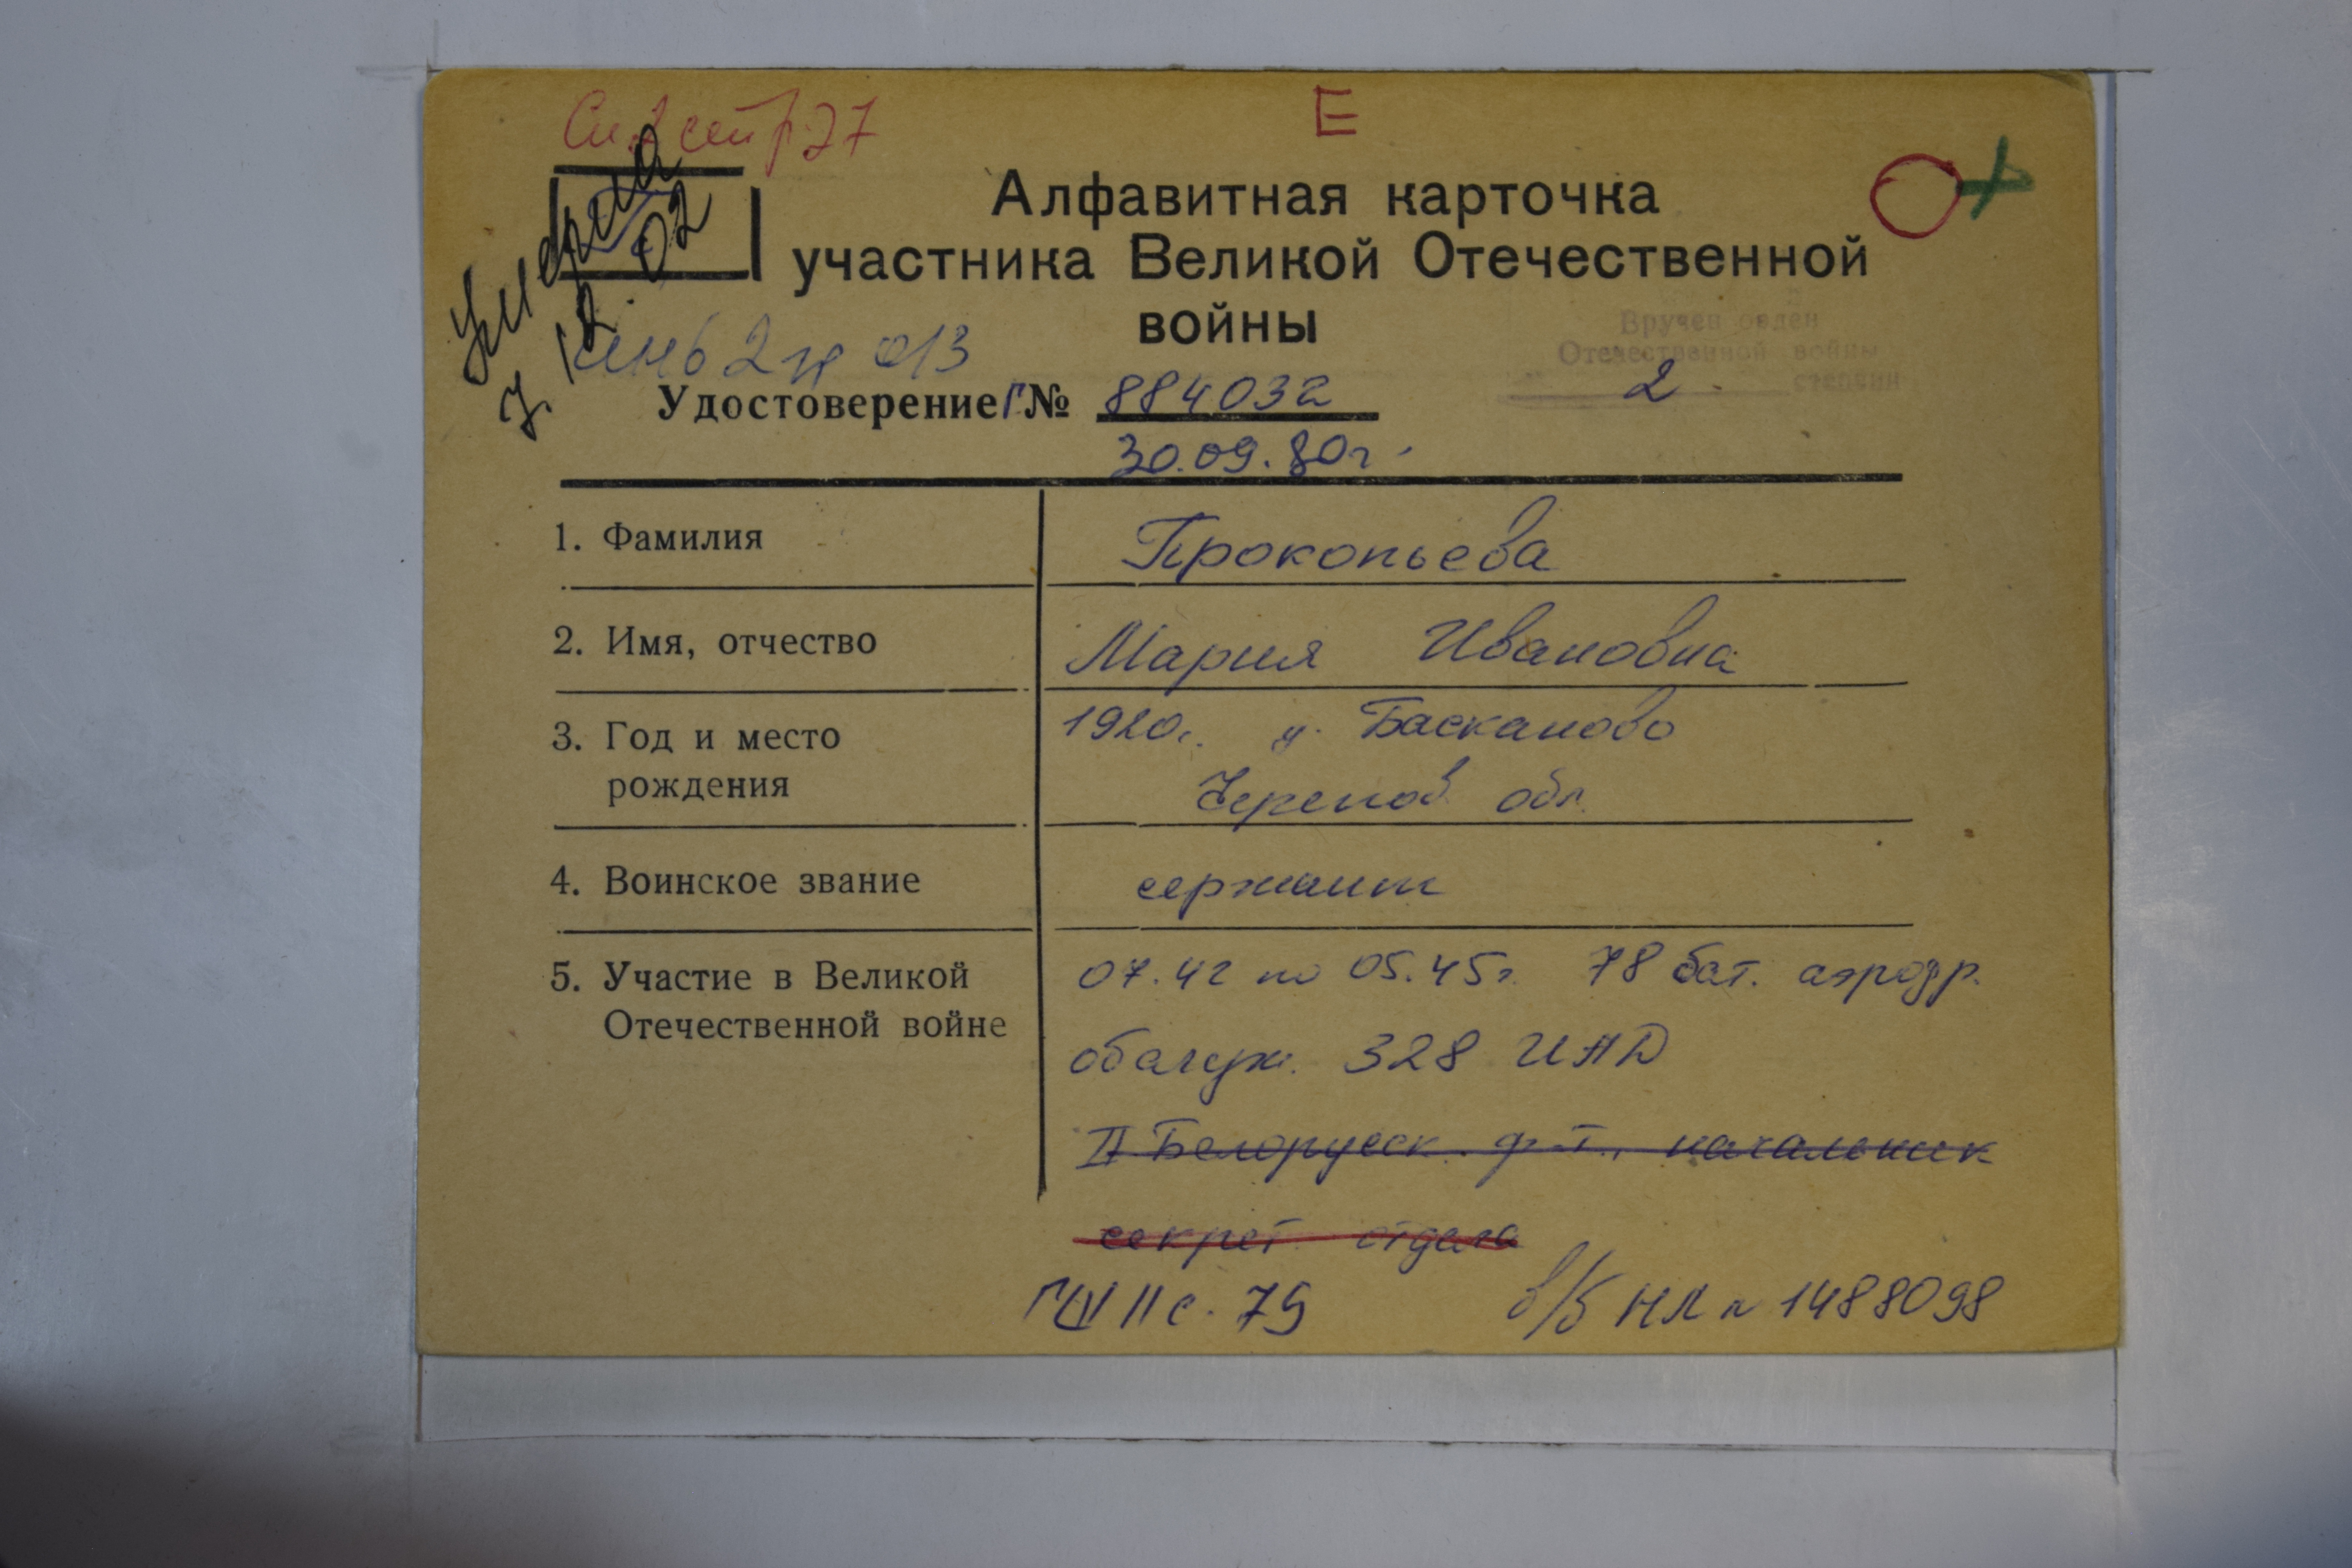 Е
Умерла
7.12.02
Алфавитная карточка
участника Великой Отечественной
войны
Вручен орден
Отечественной войны
2 степени
Удостоверение Г № 884032
30.09.80г.
1. Фамилия Прокопьева
2. Имя, отчество Мария Ивановна
3. Год и место 1920г. Басканово
рождения Черепов. обл.
4. Воинское звание сержант
5. Участие в Великой 07.42 по 05.45г. 78 бат. аэродр.
Отечественной войне
обслуж. 328 ИАД
II Белорусск. ф-т., начальник
секрет. отдела
с. 79 в/б НЛ № 1488098